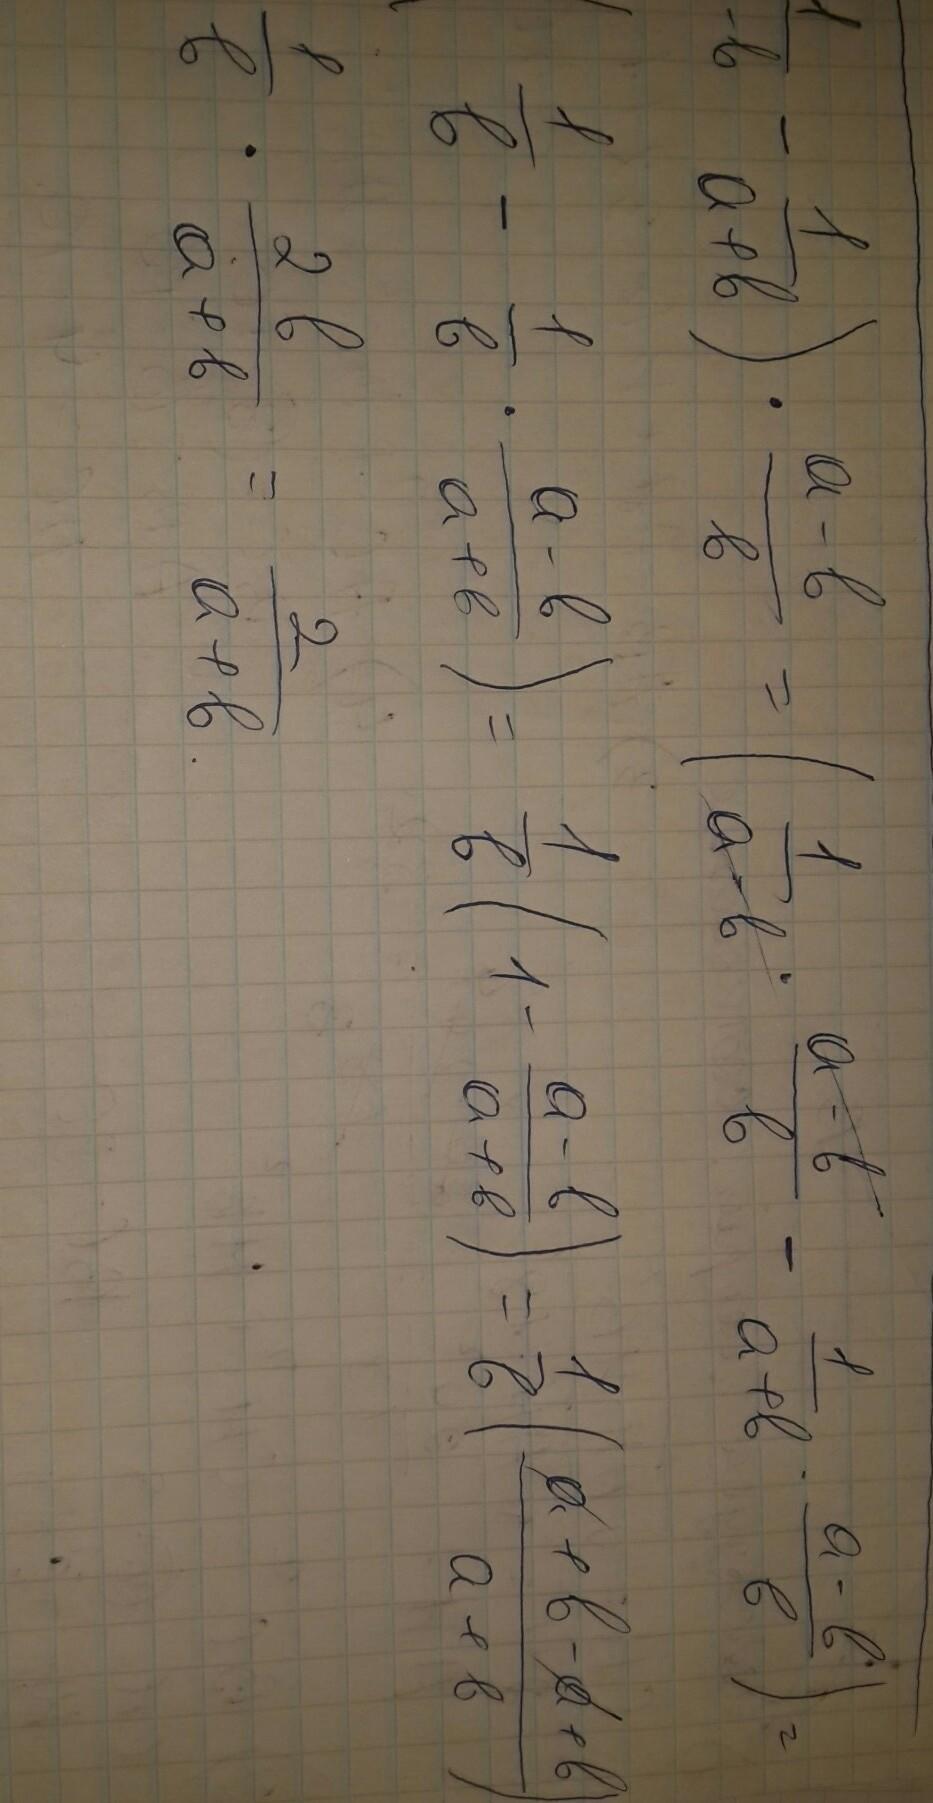 1/-b - 1/(a+b)) · (a-b)/b = (1/(a-b) · (a-b)/b - 1/(a+b) · (a-b)/b) =
(1/b - 1/b · (a-b)/(a+b)) = 1/b (1 - (a-b)/(a+b)) = 1/b ((a+b-a+b)/(a+b))
1/b · 2b/(a+b) = 2/(a+b).